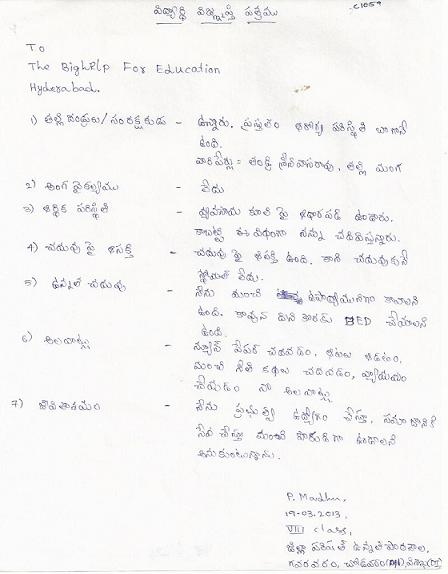 విద్యార్థి విజ్ఞప్తి పత్రము
C1059
To
The BigHelp For Education
Hyderabad.
1) తల్లిదండ్రులు/సంరక్షకుడు - ఉన్నారు. ప్రస్తుతం ఆరోగ్య పరిస్థితి బాగానే
ఉంది.
వారిపేర్లు = తండ్రి శ్రీనివాసరావు, తల్లి మంగ
2) అంగవైకల్యము - లేదు
3) ఆర్థిక పరిస్థితి - వ్యవసాయ కూలి పై ఆధారపడి ఉంటారు.
కాబట్టి ఈ విధంగా నన్ను చదివిస్తున్నారు.
4) చదువు పై ఆసక్తి - చదువు పై ఆసక్తి ఉంది. కాని చదువుకునే
స్తోమత లేదు.
5) ఉన్నత చదువు - నేను మంచి ఉపాధ్యాయునిగా కావాలని
ఉంది. కావున దాని కొరకు DED చేయాలని
ఉంది.
6) అలవాట్లు - న్యూస్ పేపర్ చదవడం, ఆటలు ఆడటం,
మంచి నీతి కథలు చదవడం, వ్యాయామం
చేయడం నా అలవాట్లు
7) జీవితాశయం - నేను ప్రభుత్వ ఉద్యోగం చేస్తూ, సమాజానికి
సేవ చేస్తూ మంచి పౌరుడిగా ఉండాలని
అనుకుంటున్నాను.
P. Madhu,
19-03-2013,
VIII class,
జిల్లా పరిషత్ ఉన్నత పాఠశాల,
గవరవరం, చోడవరం